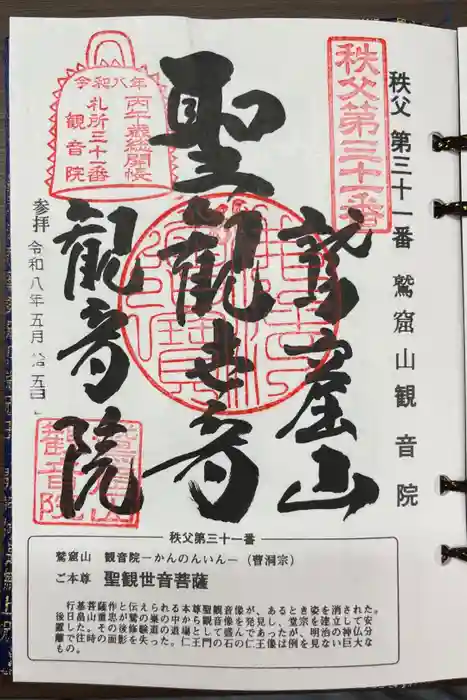 秩父 第三十一番 鷲窟山観音院
秩父第三十一番
鷲窟山
聖観世音
観音院
令和八年
丙午歳総開帳
札所三十一番
観音院
参拝 令和八年五月拾五日
秩父第三十一番
鷲窟山 観音院―かんのんいん―（曹洞宗）
ご本尊 聖観世音菩薩
行基菩薩作と伝えられる本尊聖観音像が、あるとき姿を消された。
後日畠山重忠が鷲の巣の中から観音像を発見し、堂宗を建立して安
置した。その後修験道の道場として盛んであったが、明治の神仏分
離で往時の面影を失った。仁王門の石の仁王像は例を見ない巨大な
もの。